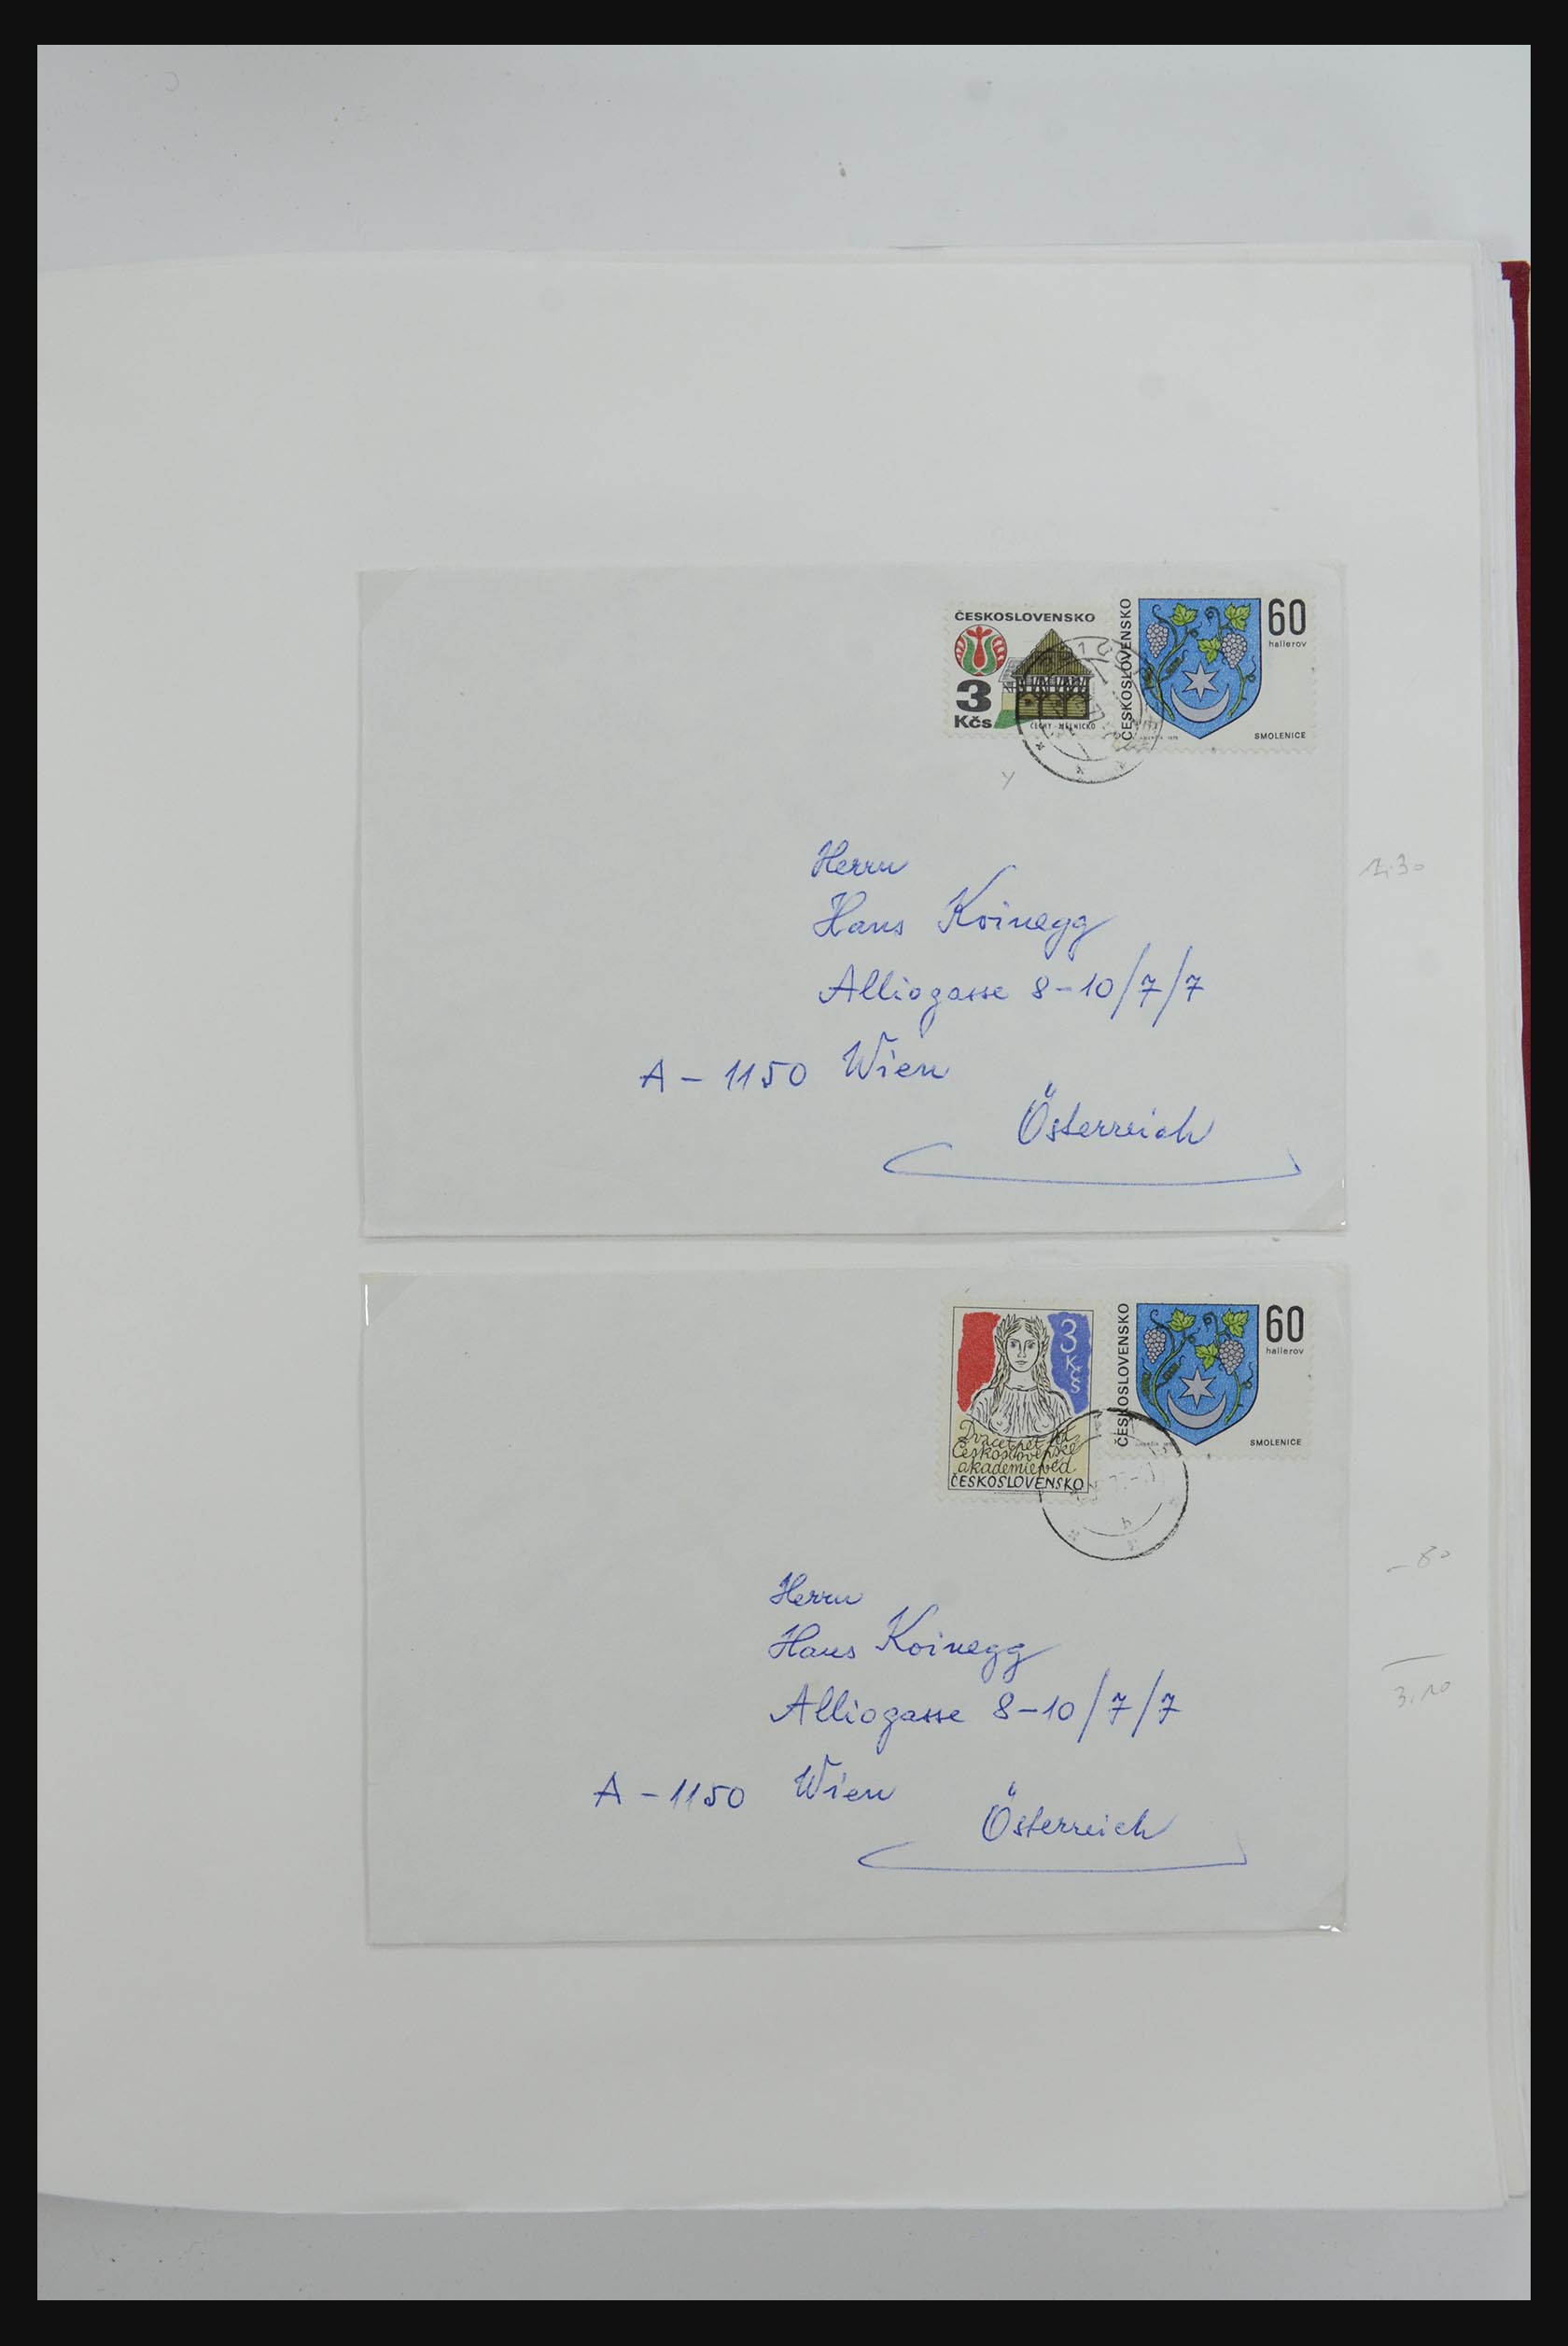 ČESKOSLOVENSKO
3
Kčs
ČECHY - MĚLNICKO
ČESKOSLOVENSKO
60
halierov
SMOLENICE
Herrn
Hans Koinegg
Alliogasse 8-10/7/7
A - 1150 Wien
Österreich
3
Kčs
Dvacet pět let
Československé
akademie věd
ČESKOSLOVENSKO
ČESKOSLOVENSKO
60
halierov
SMOLENICE
Herrn
Hans Koinegg
Alliogasse 8-10/7/7
A - 1150 Wien
Österreich
- 80
3.10